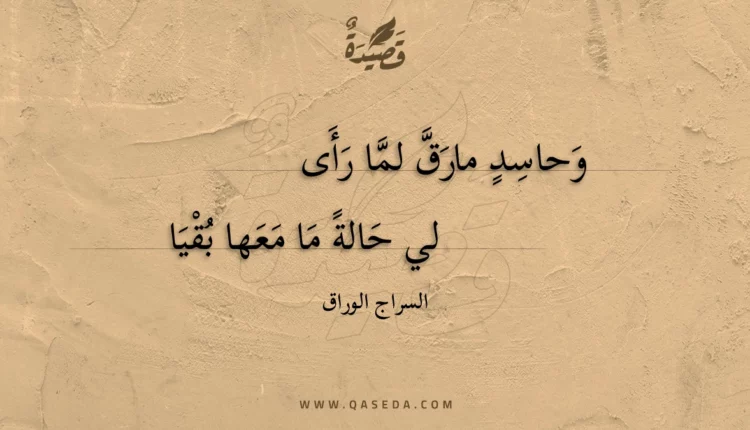 قَصِيدَةٌ
وَحاسِدٍ مارَقَّ لمَّا رَأَى
لي حَالةً مَا مَعَها بُقْيَا
السراج الوراق
WWW.QASEDA.COM